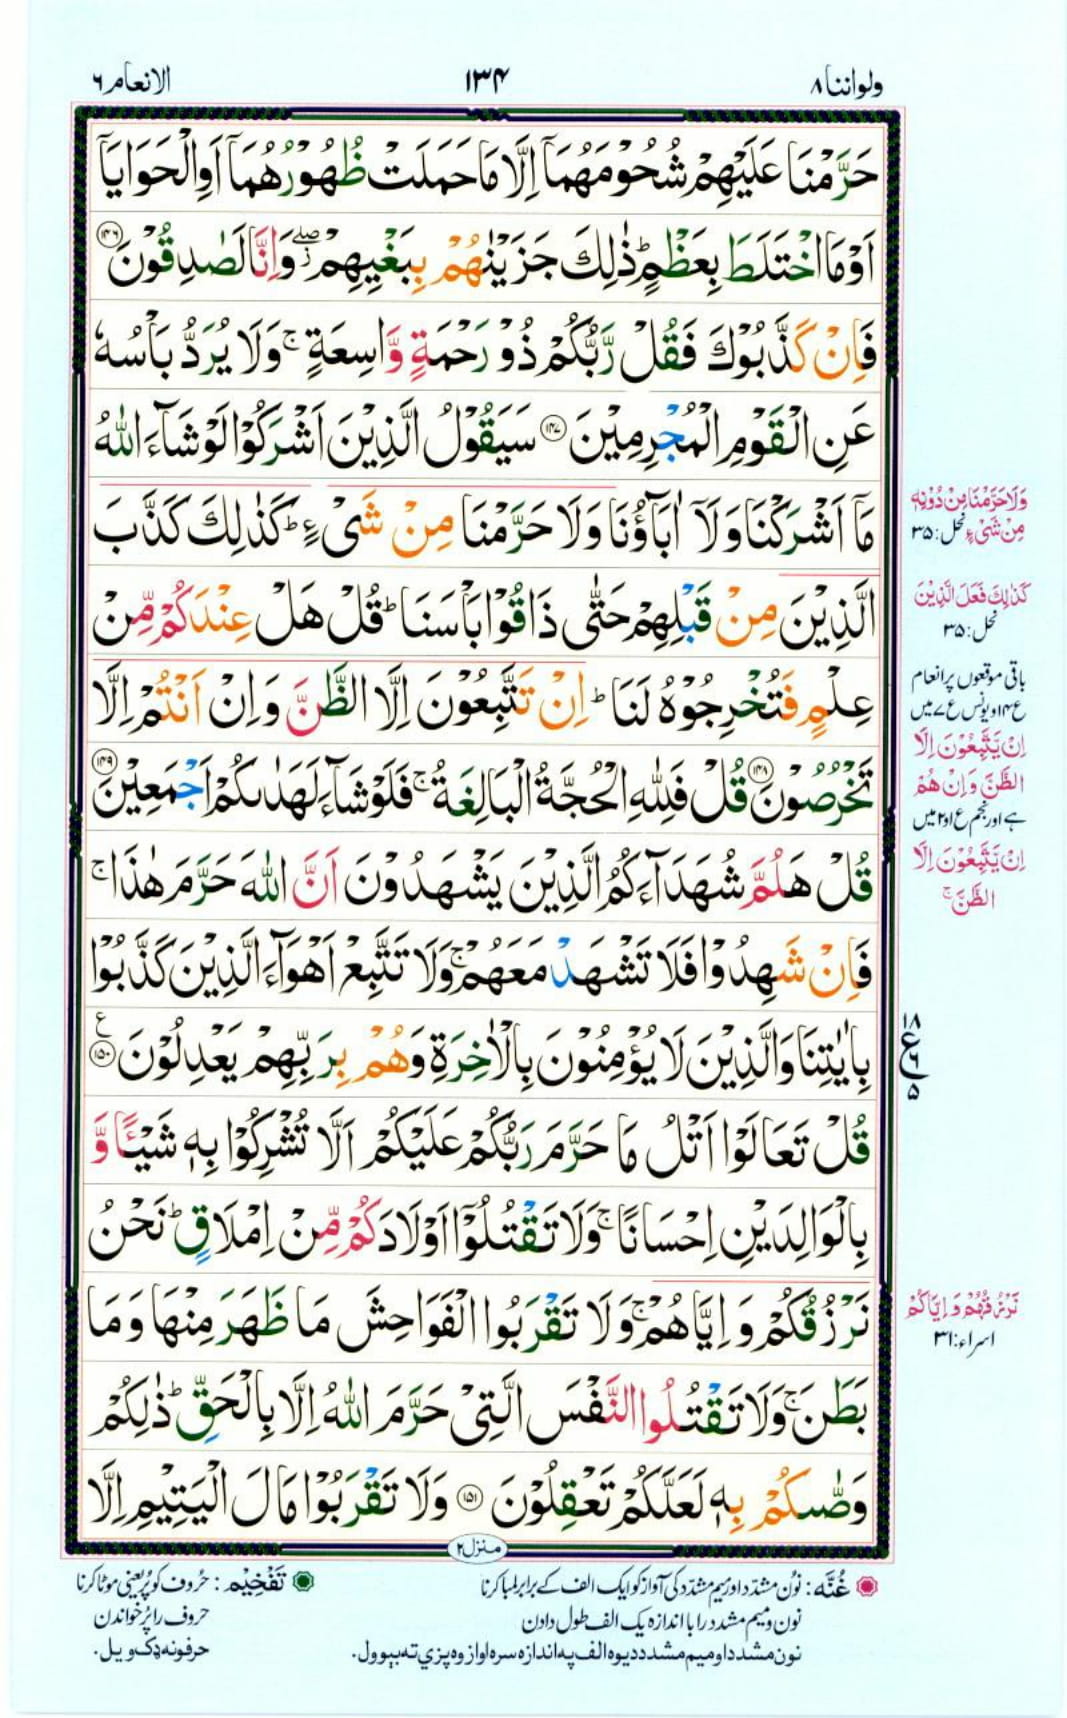 ولواننا ٨
١٣٤
الانعام ٦
حَرَّمْنَا عَلَيْهِمْ شُحُوْمَهُمَاۤ اِلَّا مَا حَمَلَتْ ظُهُوْرُهُمَاۤ اَوِ الْحَوَايَاۤ
اَوْ مَا اخْتَلَطَ بِعَظْمٍ ؕ ذٰلِكَ جَزَيْنٰهُمْ بِبَغْيِهِمْ ۖؗ وَاِنَّا لَصٰدِقُوْنَ ﴿۱۴۶﴾
فَاِنْ كَذَّبُوْكَ فَقُلْ رَّبُّكُمْ ذُوْ رَحْمَةٍ وَّاسِعَةٍ ۚ وَلَا يُرَدُّ بَاْسُهٗ
عَنِ الْقَوْمِ الْمُجْرِمِيْنَ ﴿۱۴۷﴾ سَيَقُوْلُ الَّذِيْنَ اَشْرَكُوْا لَوْ شَآءَ اللّٰهُ
مَاۤ اَشْرَكْنَا وَلَاۤ اٰبَآؤُنَا وَلَا حَرَّمْنَا مِنْ شَىْءٍ ؕ كَذٰلِكَ كَذَّبَ
الَّذِيْنَ مِنْ قَبْلِهِمْ حَتّٰى ذَاقُوْا بَاْسَنَا ؕ قُلْ هَلْ عِنْدَكُمْ مِّنْ
عِلْمٍ فَتُخْرِجُوْهُ لَنَا ؕ اِنْ تَتَّبِعُوْنَ اِلَّا الظَّنَّ وَاِنْ اَنْتُمْ اِلَّا
تَخْرُصُوْنَ ﴿۱۴۸﴾ قُلْ فَلِلّٰهِ الْحُجَّةُ الْبَالِغَةُ ۚ فَلَوْ شَآءَ لَهَدٰىكُمْ اَجْمَعِيْنَ ﴿۱۴۹﴾
قُلْ هَلُمَّ شُهَدَآءَكُمُ الَّذِيْنَ يَشْهَدُوْنَ اَنَّ اللّٰهَ حَرَّمَ هٰذَا ۚ
فَاِنْ شَهِدُوْا فَلَا تَشْهَدْ مَعَهُمْ ۚ وَلَا تَتَّبِعْ اَهْوَآءَ الَّذِيْنَ كَذَّبُوْا
بِاٰيٰتِنَا وَالَّذِيْنَ لَا يُؤْمِنُوْنَ بِالْاٰخِرَةِ وَهُمْ بِرَبِّهِمْ يَعْدِلُوْنَ ﴿۱۵۰﴾ ع
قُلْ تَعَالَوْا اَتْلُ مَا حَرَّمَ رَبُّكُمْ عَلَيْكُمْ اَلَّا تُشْرِكُوْا بِهٖ شَيْـًٔا وَّ
بِالْوَالِدَيْنِ اِحْسَانًا ۚ وَلَا تَقْتُلُوْۤا اَوْلَادَكُمْ مِّنْ اِمْلَاقٍ ؕ نَحْنُ
نَرْزُقُكُمْ وَاِيَّاهُمْ ۚ وَلَا تَقْرَبُوا الْفَوَاحِشَ مَا ظَهَرَ مِنْهَا وَمَا
بَطَنَ ۚ وَلَا تَقْتُلُوا النَّفْسَ الَّتِىْ حَرَّمَ اللّٰهُ اِلَّا بِالْحَقِّ ؕ ذٰلِكُمْ
وَصّٰىكُمْ بِهٖ لَعَلَّكُمْ تَعْقِلُوْنَ ﴿۱۵۱﴾ وَلَا تَقْرَبُوْا مَالَ الْيَتِيْمِ اِلَّا
منزل۲
وَلَا حَرَّمْنَا مِنْ دُوْنِهٖ
مِنْ شَىْءٍ نحل: ۳۵
كَذٰلِكَ فَعَلَ الَّذِيْنَ
نحل: ۳۵
باقی موقعوں پر انعام
ع۱۴ اور یونس ع۷ میں
اِنْ يَّتَّبِعُوْنَ اِلَّا
الظَّنَّ وَاِنْ هُمْ
ہے اور نجم ع۱و۲ میں
اِنْ يَّتَّبِعُوْنَ اِلَّا
الظَّنَّ ۚ
۱۸
ع ۶
۵
نَرْزُقُهُمْ وَاِيَّاكُمْ
اسراء: ۳۱
غُنَّه: نون مشدّد اور میم مشدّد کی آواز کو ایک الف کے برابر لمبا کرنا
نون و میم مشدد را با اندازه یک الف طول دادن
نون مشدد او میم مشدد د یوه الف په اندازه سره اواز وه پزې ته بیوول.
تَفْخِيْم: حُروف کو پُر یعنی موٹا کرنا
حروف را پُر خواندن
حرفونه ډک ویل.